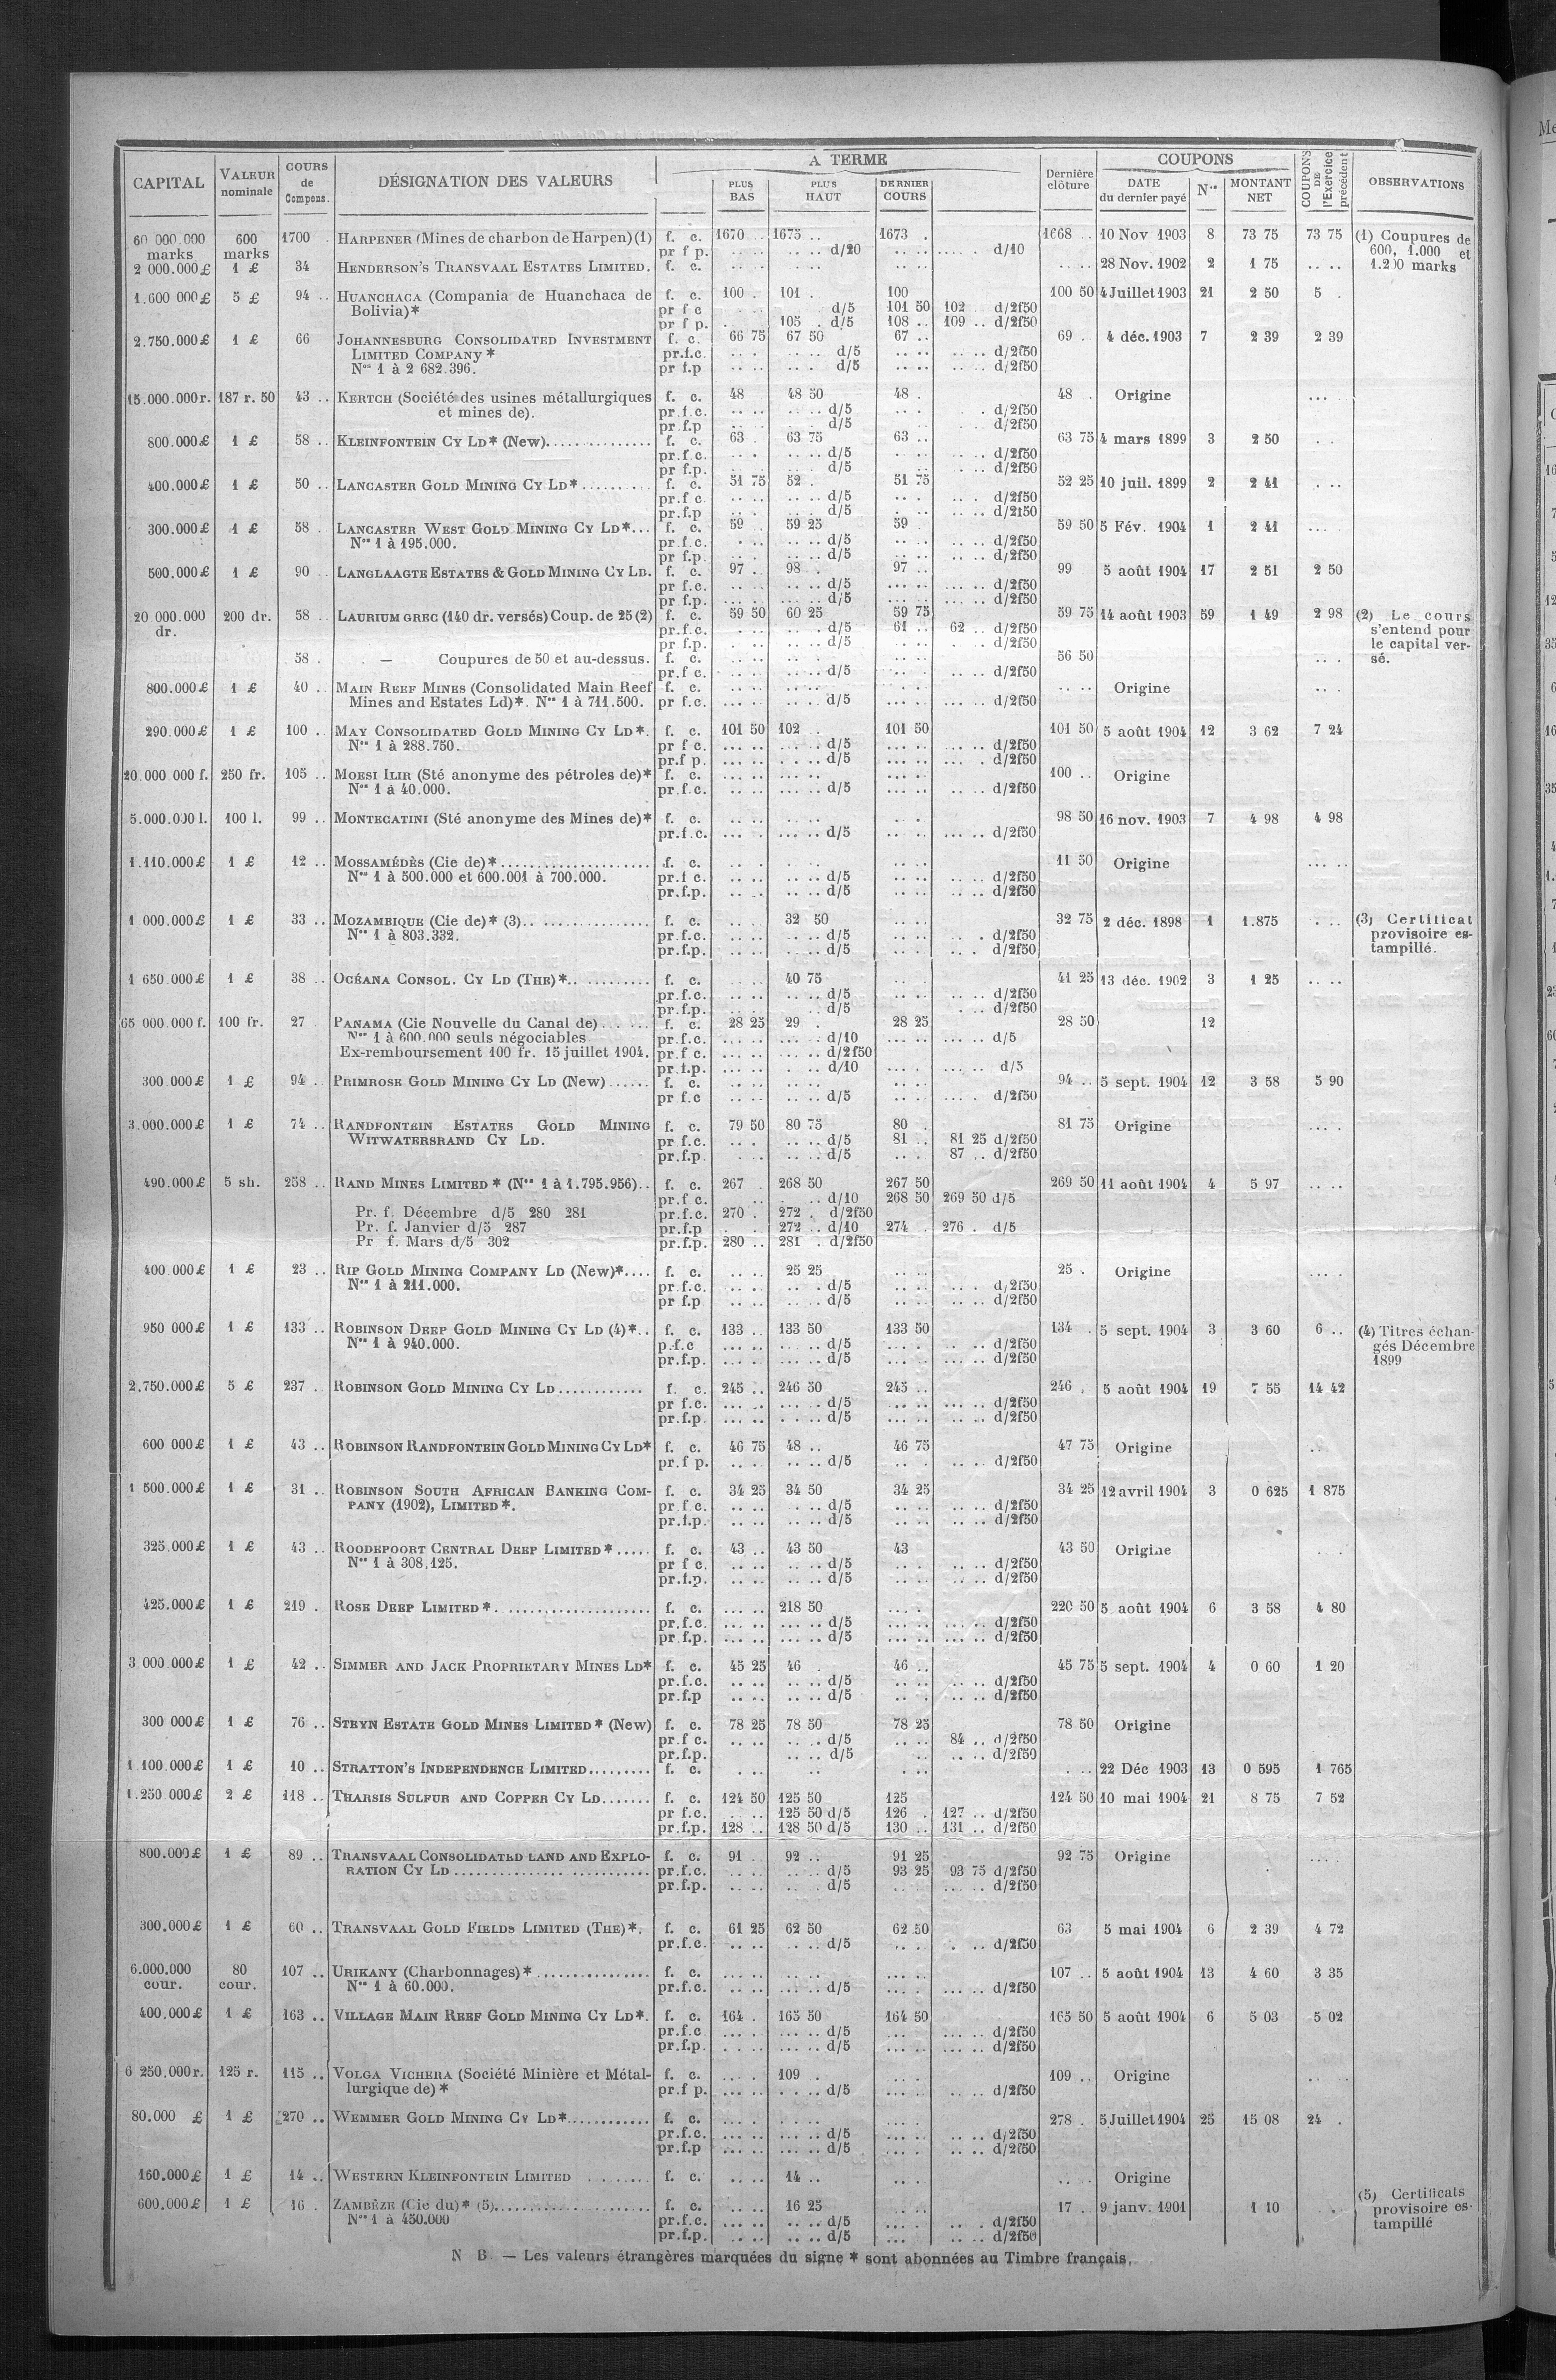 CAPITAL | VALEUR nominale | COURS de Compens. | DÉSIGNATION DES VALEURS | A TERME | PLUS BAS | PLUS HAUT | DERNIER COURS | Dernière clôture | COUPONS | DATE du dernier payé | Nos | MONTANT NET | COUPONS DE l'Exercice précédent | OBSERVATIONS
60 000.000 marks | 600 marks | 1700 . | HARPENER (Mines de charbon de Harpen)(1) | f. c. | 1670 .. | 1675 .. | 1673 . | 1668 .. | 10 Nov 1903 | 8 | 73 75 | 73 75 | (1) Coupures de
pr f p. | .. .. d/20 | .. .. | .. .. d/10 | 600, 1.000 et
2 000.000 £ | 1 £ | 34 | HENDERSON'S TRANSVAAL ESTATES LIMITED. | f. c. | .. .. | .. .. | .. .. | .. .. | 28 Nov. 1902 | 2 | 1 75 | .. .. | 1.200 marks
1.600 000 £ | 5 £ | 94 .. | HUANCHACA (Compania de Huanchaca de | f. c. | 100 . | 101 . | 100 | 100 50 | 4 Juillet 1903 | 21 | 2 50 | 5 .
Bolivia)* | pr f c | d/5 | 101 50 | 102 d/2f50
pr f p. | 105 . d/5 | 108 .. | 109 .. d/2f50
2.750.000 £ | 1 £ | 66 | JOHANNESBURG CONSOLIDATED INVESTMENT | f. c. | 66 75 | 67 50 | 67 .. | 69 .. | 4 déc. 1903 | 7 | 2 39 | 2 39
LIMITED COMPANY * | pr.f.c. | .. . | .. .. d/5 | .. .. | .. .. d/2f50
Nos 1 à 2 682.396. | pr f.p | .. .. | .. . d/5 | .. .. | .. .. d/2f50
15.000.000 r. | 187 r. 50 | 43 .. | KERTCH (Société des usines métallurgiques | f. c. | 48 | 48 50 | 48 . | 48 . | Origine | ... .
et mines de). | pr.f.c. | .. .. | .. .. d/5 | .. . | . d/2f50
pr.f.p | .. .. | .. .. d/5 | d/2f50
800.000 £ | 1 £ | 58 .. | KLEINFONTEIN CY LD* (New)............... | f. c. | 63 . | 63 75 | 63 .. | 63 75 | 4 mars 1899 | 3 | 2 50 | . .
pr.f c. | .. . | .. .. d/5 | . .. | .. .. d/2f50
pr f.p. | d/5 | .. .. d/2f50
400.000 £ | 1 £ | 50 .. | LANCASTER GOLD MINING CY LD* .......... | f. c. | 51 75 | 52 . | 51 75 | 52 25 | 10 juil. 1899 | 2 | 2 41 | . ..
pr.f c | .. .. | .. .. d/5 | .. . | .. . d/2f50
pr.f.p | .. .. | .. .. d/5 | . .. | .. .. d/2f50
300.000 £ | 1 £ | 58 . | LANCASTER WEST GOLD MINING CY LD*... | f. c. | 59 .. | 59 25 | 59 . | 59 50 | 5 Fév. 1904 | 1 | 2 41 | ...
Nos 1 à 195.000. | pr.f.c. | . .. | .. .. d/5 | .. .. | .. .. d/2f50
pr f.p. | .. . | .. .. d/5 | .. .. | .. .. d/2f50
500.000 £ | 1 £ | 90 .. | LANGLAAGTE ESTATES & GOLD MINING CY LD. | f. c. | 97 .. | 98 .. | 97 .. | 99 | 5 août 1904 | 17 | 2 51 | 2 50
pr f.c. | .. .. | .. .. d/5 | ... .. | ... .. d/2f50
pr f.p. | ... .. | ... .. d/5 | ... .. | ... .. d/2f50
20 000.000 dr. | 200 dr. | 58 .. | LAURIUM GREC (140 dr. versés) Coup. de 25 (2) | f. c. | 59 50 | 60 25 | 59 75 | 59 75 | 14 août 1903 | 59 | 1 49 | 2 98 | (2) Le cours
pr.f.c. | . .. | .. . d/5 | 61 .. | 62 .. d/2f50 | s'entend pour
pr f.p. | .. .. | .. .. d/5 | . .. d/2f50 | le capital ver-
58 . | — Coupures de 50 et au-dessus. | f. c. | .. .. | .. .. | .. .. | 56 50 | .. . | sé.
pr.f c. | .. .. | .. .. d/5 | .. .. | .. .. d/2f50
800.000 £ | 1 £ | 40 .. | MAIN REEF MINES (Consolidated Main Reef | f. c. | .. .. | .. .. | .. .. | .. .. | Origine | .. .
Mines and Estates Ld)*. Nos 1 à 711.500. | pr f.c. | ... .. | .. .. d/5 | ... .. | ... .. d/2f50
290.000 £ | 1 £ | 100 .. | MAY CONSOLIDATED GOLD MINING CY LD*. | f. c. | 101 50 | 102 . | 101 50 | 101 50 | 5 août 1904 | 12 | 3 62 | 7 24
Nos 1 à 288.750. | pr f c. | ... .. | .. .. d/5 | ... .. | ... .. d/2f50
pr.f p. | ... .. | .. .. d/5 | ... .. | ... .. d/2f50
20.000 000 f. | 250 fr. | 105 .. | MORSI ILIR (Sté anonyme des pétroles de)* | f. c. | .. .. | .. .. | .. .. | 100 .. | Origine
Nos 1 à 40.000. | pr.f.c. | .. .. | ... .. d/5 | ... .. | .. .. d/2f50
5.000.000 l. | 100 l. | 99 .. | MONTECATINI (Sté anonyme des Mines de)* | f. c. | .. .. | .. .. | .. . | 98 50 | 16 nov. 1903 | 7 | 4 98 | 4 98
pr.f.c. | ... . | ... .. d/5 | .. .. | ... .. d/2f50
1.110.000 £ | 1 £ | 12 .. | MOSSAMÉDÈS (Cie de)* ..................... | f. c. | .. . | .. .. | .. .. | 11 50 | Origine | ... ..
Nos 1 à 500.000 et 600.001 à 700.000. | pr.f c. | .. .. | .. .. d/5 | .. .. | .. .. d/2f50
pr.f.p. | .. .. | .. .. d/5 | .. .. | .. .. d/2f50
1 000.000 £ | 1 £ | 33 .. | MOZAMBIQUE (Cie de)* (3).. ............... | f. c. | .. . | 32 50 | .. .. | 32 75 | 2 déc. 1898 | 1 | 1.875 | . .. | (3) Certificat
Nos 1 à 803.332. | pr.f.c. | .. .. | .. .. d/5 | .. .. | .. . d/2f50 | provisoire es-
pr.f.p. | .. .. | .. .. d/5 | .. .. | .. . d/2f50 | tampillé.
1 650.000 £ | 1 £ | 38 .. | OCÉANA CONSOL. CY LD (THE)*.. .......... | f. c. | 40 75 | .. . | 41 25 | 13 déc. 1902 | 3 | 1 25 | .. ..
pr.f.c. | .. .. | .. .. d/5 | .. .. | .. .. d/2f50
pr.f.p. | .. .. | .. .. d/5 | . .. d/2f50
65 000.000 f. | 100 fr. | 27 | PANAMA (Cie Nouvelle du Canal de) .. .... | f. c. | 28 25 | 29 . | 28 25 | 28 50 | 12
Nos 1 à 600.000 seuls négociables | pr.f.c. | ... .. | ... . d/10 | ... .. | ... .. d/5
Ex-remboursement 100 fr. 15 juillet 1904. | pr.f c. | ... .. | ... .. d/2f50
pr.f.p. | ... .. | .. . d/10 | ... .. | ... .. d/5
300 000 £ | 1 £ | 94 .. | PRIMROSE GOLD MINING CY LD (New) ...... | f. c. | .. .. | .. .. | .. .. | 94 .. | 5 sept. 1904 | 12 | 3 58 | 5 90
pr f.c | .. .. | .. .. d/5 | .. .. | .. .. d/2f50
3.000.000 £ | 1 £ | 74 .. | RANDFONTEIN ESTATES GOLD MINING | f. c. | 79 50 | 80 75 | 80 . | 81 75 | Origine | ....
WITWATERSRAND CY LD. | pr f.c. | .. . | .. .. d/5 | 81 .. | 81 25 d/2f50
pr.f.p. | . .. | .. .. d/5 | .. . | 87 .. d/2f50
490.000 £ | 5 sh. | 258 .. | RAND MINES LIMITED * (Nos 1 à 1.795.956).. | f. c. | 267 . | 268 50 | 267 50 | 269 50 | 11 août 1904 | 4 | 5 97 | .. ..
pr.f c. | .. . d/10 | 268 50 | 269 50 d/5
Pr. f. Décembre d/5 280 281 | pr.f.c. | 270 . | 272 . d/2f50
Pr. f. Janvier d/5 287 | pr.f.p | 272 .. d/10 | 274 . | 276 . d/5
Pr f. Mars d/5 302 | pr.f.p. | 280 .. | 281 . d/2f50
400.000 £ | 1 £ | 23 .. | RIP GOLD MINING COMPANY LD (New)*.... | f. c. | .. .. | 25 25 | .. .. | 25 . | Origine | .. .
Nos 1 à 211.000. | pr.f.c. | .. .. | .. . d/5 | .. .. | .. . d/2f50
pr f.p | .. .. | .. .. d/5 | .. .. | .. .. d/2f50
950 000 £ | 1 £ | 133 .. | ROBINSON DEEP GOLD MINING CY LD (4)*.. | f. c. | 133 .. | 133 50 | 133 50 | 134 . | 5 sept. 1904 | 3 | 3 60 | 6 .. | (4) Titres échan-
Nos 1 à 940.000. | p.f.c | ... .. | ... .. d/5 | ... . | .. .. d/2f50 | gés Décembre
pr.f.p. | ... .. | ... .. d/5 | ... .. | .. .. d/2f50 | 1899
2.750.000 £ | 5 £ | 237 . | ROBINSON GOLD MINING CY LD ............ | f. c. | 245 .. | 246 50 | 245 .. | 246 . | 5 août 1904 | 19 | 7 55 | 14 42
pr f.c. | ... .. | ... .. d/5 | .. .. | ... .. d/2f50
pr.f.p. | ... .. | . .. d/5 | .. .. | ... .. d/2f50
600 000 £ | 1 £ | 43 .. | ROBINSON RANDFONTEIN GOLD MINING CY LD* | f. c. | 46 75 | 48 .. | 46 75 | 47 75 | Origine | ...
pr.f p. | .. .. | .. .. d/5 | .. . | .. .. d/2f50
1 500.000 £ | 1 £ | 31 .. | ROBINSON SOUTH AFRICAN BANKING COM- | f. c. | 34 25 | 34 50 | 34 25 | 34 25 | 12 avril 1904 | 3 | 0 625 | 1 875
PANY (1902), LIMITED *. | pr f c. | .. .. | . .. d/5 | .. .. | .. .. d/2f50
pr.f.p. | .. .. | .. .. d/5 | .. .. | .. .. d/2f50
325.000 £ | 1 £ | 43 .. | ROODEPOORT CENTRAL DEEP LIMITED * ..... | f. c. | 43 .. | 43 50 | 43 | 43 50 | Origine | . .
Nos 1 à 308.125. | pr f c. | .. .. | .. .. d/5 | .. .. | .. .. d/2f50
pr.f.p. | .. .. | .. .. d/5 | .. .. | .. .. d/2f50
425.000 £ | 1 £ | 219 . | ROSE DEEP LIMITED *. ..................... | f. c. | ... .. | 218 50 | .. .. | 220 50 | 5 août 1904 | 6 | 3 58 | 4 80
pr.f.c. | ... .. | ... .. d/5 | ... .. | ... .. d/2f50
pr f.p. | ... .. | ... .. d/5 | ... .. | ... .. d/2f50
3 000 000 £ | 1 £ | 42 .. | SIMMER AND JACK PROPRIETARY MINES LD* | f. c. | 45 25 | 46 . | 46 .. | 45 75 | 5 sept. 1904 | 4 | 0 60 | 1 20
pr.f.c. | .. .. | .. .. d/5 | .. .. | .. .. d/2f50
pr.f.p | .. .. | .. .. d/5 | .. . | .. .. d/2f50
300 000 £ | 1 £ | 76 .. | STEYN ESTATE GOLD MINES LIMITED * (New) | f. c. | 78 25 | 78 50 | 78 25 | 78 50 | Origine
pr f c. | .. .. | .. .. d/5 | .. .. | 84 .. d/2f50
pr.f.p. | .. .. d/5 | .. .. | .. .. d/2f50
1 100.000 £ | 1 £ | 10 .. | STRATTON'S INDEPENDENCE LIMITED......... | f. c. | . .. | .. | . .. | . .. | 22 Déc 1903 | 13 | 0 595 | 1 765
1.250 000 £ | 2 £ | 118 .. | THARSIS SULFUR AND COPPER CY LD....... | f. c. | 124 50 | 125 50 | 125 | 124 50 | 10 mai 1904 | 21 | 8 75 | 7 52
pr f.c. | . .. | 125 50 d/5 | 126 . | 127 .. d/2f50
pr.f.p. | 128 .. | 128 50 d/5 | 130 .. | 131 .. d/2f50
800.000 £ | 1 £ | 89 .. | TRANSVAAL CONSOLIDATED LAND AND EXPLO- | f. c. | 91 . | 92 .. | 91 25 | 92 75 | Origine | ....
RATION CY LD ............................ | pr.f.c. | .. .. | .. . d/5 | 93 25 | 93 75 d/2f50
pr.f.p. | .. .. | .. . d/5 | .. .. | ... .. d/2f50
300.000 £ | 1 £ | 60 .. | TRANSVAAL GOLD FIELDS LIMITED (THE)*. | f. c. | 61 25 | 62 50 | 62 50 | 63 | 5 mai 1904 | 6 | 2 39 | 4 72
pr.f.c. | .. .. | .. .. d/5 | .. . | . .. d/2f50
6.000.000 cour. | 80 cour. | 107 .. | URIKANY (Charbonnages)* ................ | f. c. | ... .. | ... .. | ... .. | 107 .. | 5 août 1904 | 13 | 4 60 | 3 35
Nos 1 à 60.000. | pr.f.c. | .. .. | ... .. d/5 | ... .. | ... .. d/2f50
400.000 £ | 1 £ | 163 .. | VILLAGE MAIN REEF GOLD MINING CY LD*. | f. c. | 164 . | 165 50 | 164 50 | 165 50 | 5 août 1904 | 6 | 5 03 | 5 02
pr.f.c | ... . | ... .. d/5 | ... | ... .. d/2f50
pr.f.p. | . .. .. | ... .. d/5 | ... . | .. .. d/2f50
6 250.000 r. | 125 r. | 115 .. | VOLGA VICHERA (Société Minière et Métal- | f. c. | ... . | 109 . | ... . | 109 .. | Origine | .. .
lurgique de) * | pr.f p. | ... .. | . .. d/5 | ... . | .. .. d/2f50
80.000 £ | 1 £ | 270 .. | WEMMER GOLD MINING CY LD*............ | f. c. | ... . | .. .. | ... . | 278 . | 5 Juillet 1904 | 25 | 15 08 | 24 .
pr.f.c. | ... .. | ... .. d/5 | ... . | .. .. d/2f50
pr.f.p | ... .. | ... .. d/5 | ... . | .. .. d/2f50
160.000 £ | 1 £ | 14 .. | WESTERN KLEINFONTEIN LIMITED ........ | f. c. | .. .. | 14 .. | .. . | .. . | Origine
600.000 £ | 1 £ | 16 . | ZAMBÈZE (Cie du)* (5)...................... | f. c. | .. .. | 16 25 | .. .. | 17 . | 9 janv. 1901 | 1 10 | . . | (5) Certificats
Nos 1 à 450.000 | pr.f.c. | ... .. | .. .. d/5 | ... . | .. . d/2f50 | provisoire es-
pr.f.p. | .. .. | .. .. d/5 | ... | .. .. d/2f50 | tampillé
N B. — Les valeurs étrangères marquées du signe * sont abonnées au Timbre français.